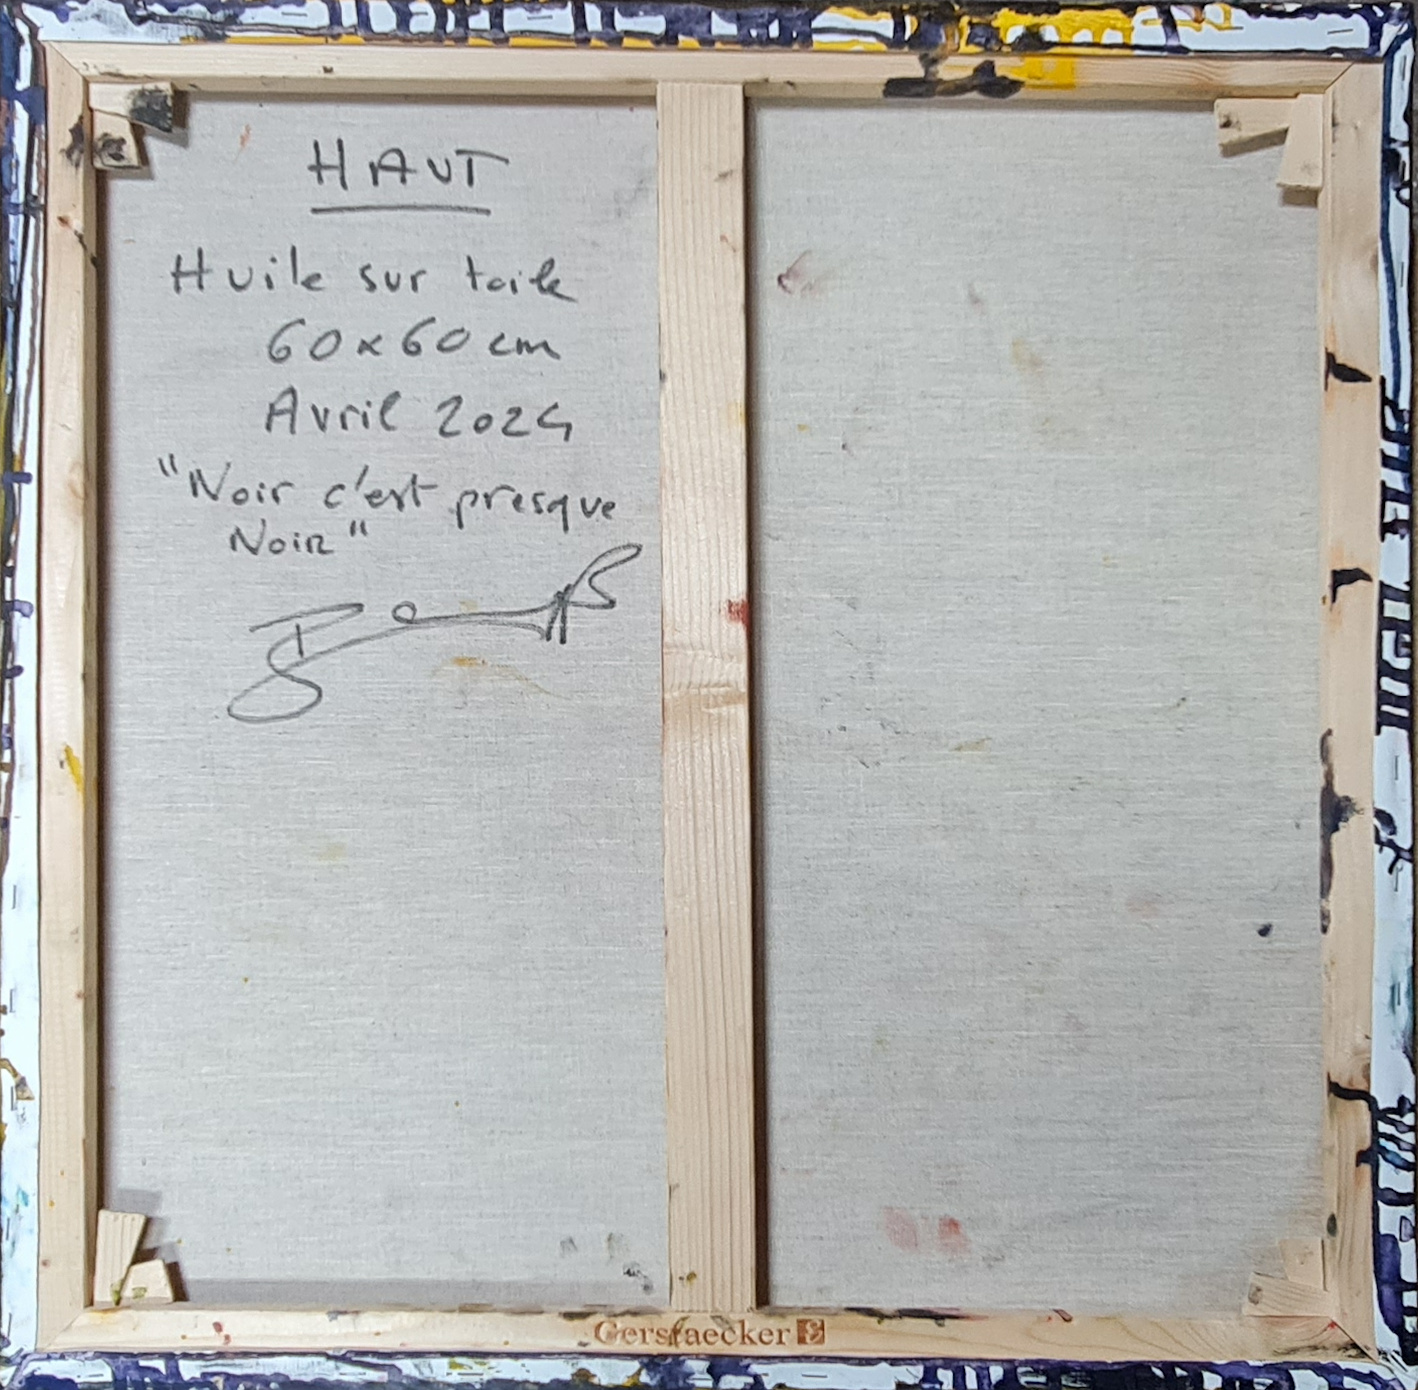 HAUT
Huile sur toile
60x60 cm
Avril 2024
"Noir c'est presque
Noir"
Gerstaecker